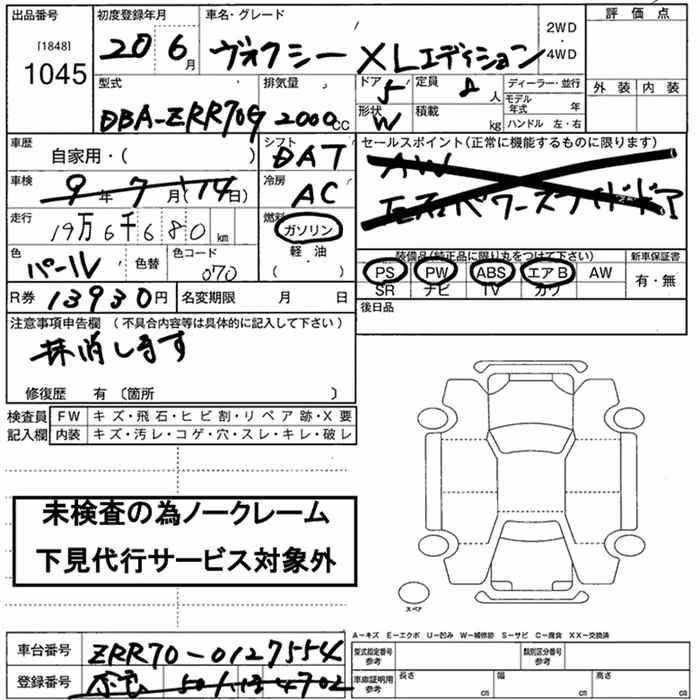 出品番号 初度登録年月 車名・グレード 評価点
[1848] 1045 20 6月 ヴォクシー XLエディション 2WD・4WD
型式 排気量 ドア 5 定員 8人 ディーラー・並行 外装 内装
DBA-ZRR70G 2000cc 形状 W 積載 kg モデル年式 年
ハンドル 左・右
車歴 自家用・( ) シフト DAT セールスポイント(正常に機能するものに限ります)
車検 9年7月(14日) 冷房 AC AW
パワースライドドア
走行 19万6千680km 燃料 ガソリン
軽・油
( )
色 パール 色替 色コード 070
装備品(純正品に限り丸をつけて下さい) 新車保証書
PS PW ABS エアB AW 有・無
SR ナビ TV カワ
R券 13930円 名変期限 月 日 後日品
注意事項申告欄 (不具合内容等は具体的に記入して下さい)
抹消します
修復歴 有 〔箇所 〕
検査員 FW キズ・飛石・ヒビ割・リペア跡・X要
記入欄 内装 キズ・汚レ・コゲ・穴・スレ・キレ・破レ
未検査の為ノークレーム
下見代行サービス対象外
スペア
A-キズ E-エクボ U-凹み W-補修跡 S-サビ C-腐食 XX-交換済
車台番号 ZRR70-0127554 型式指定番号 参考 類別区分番号 参考
登録番号 501 4702 車庫証明用 参考 長さ cm 幅 cm 高さ cm